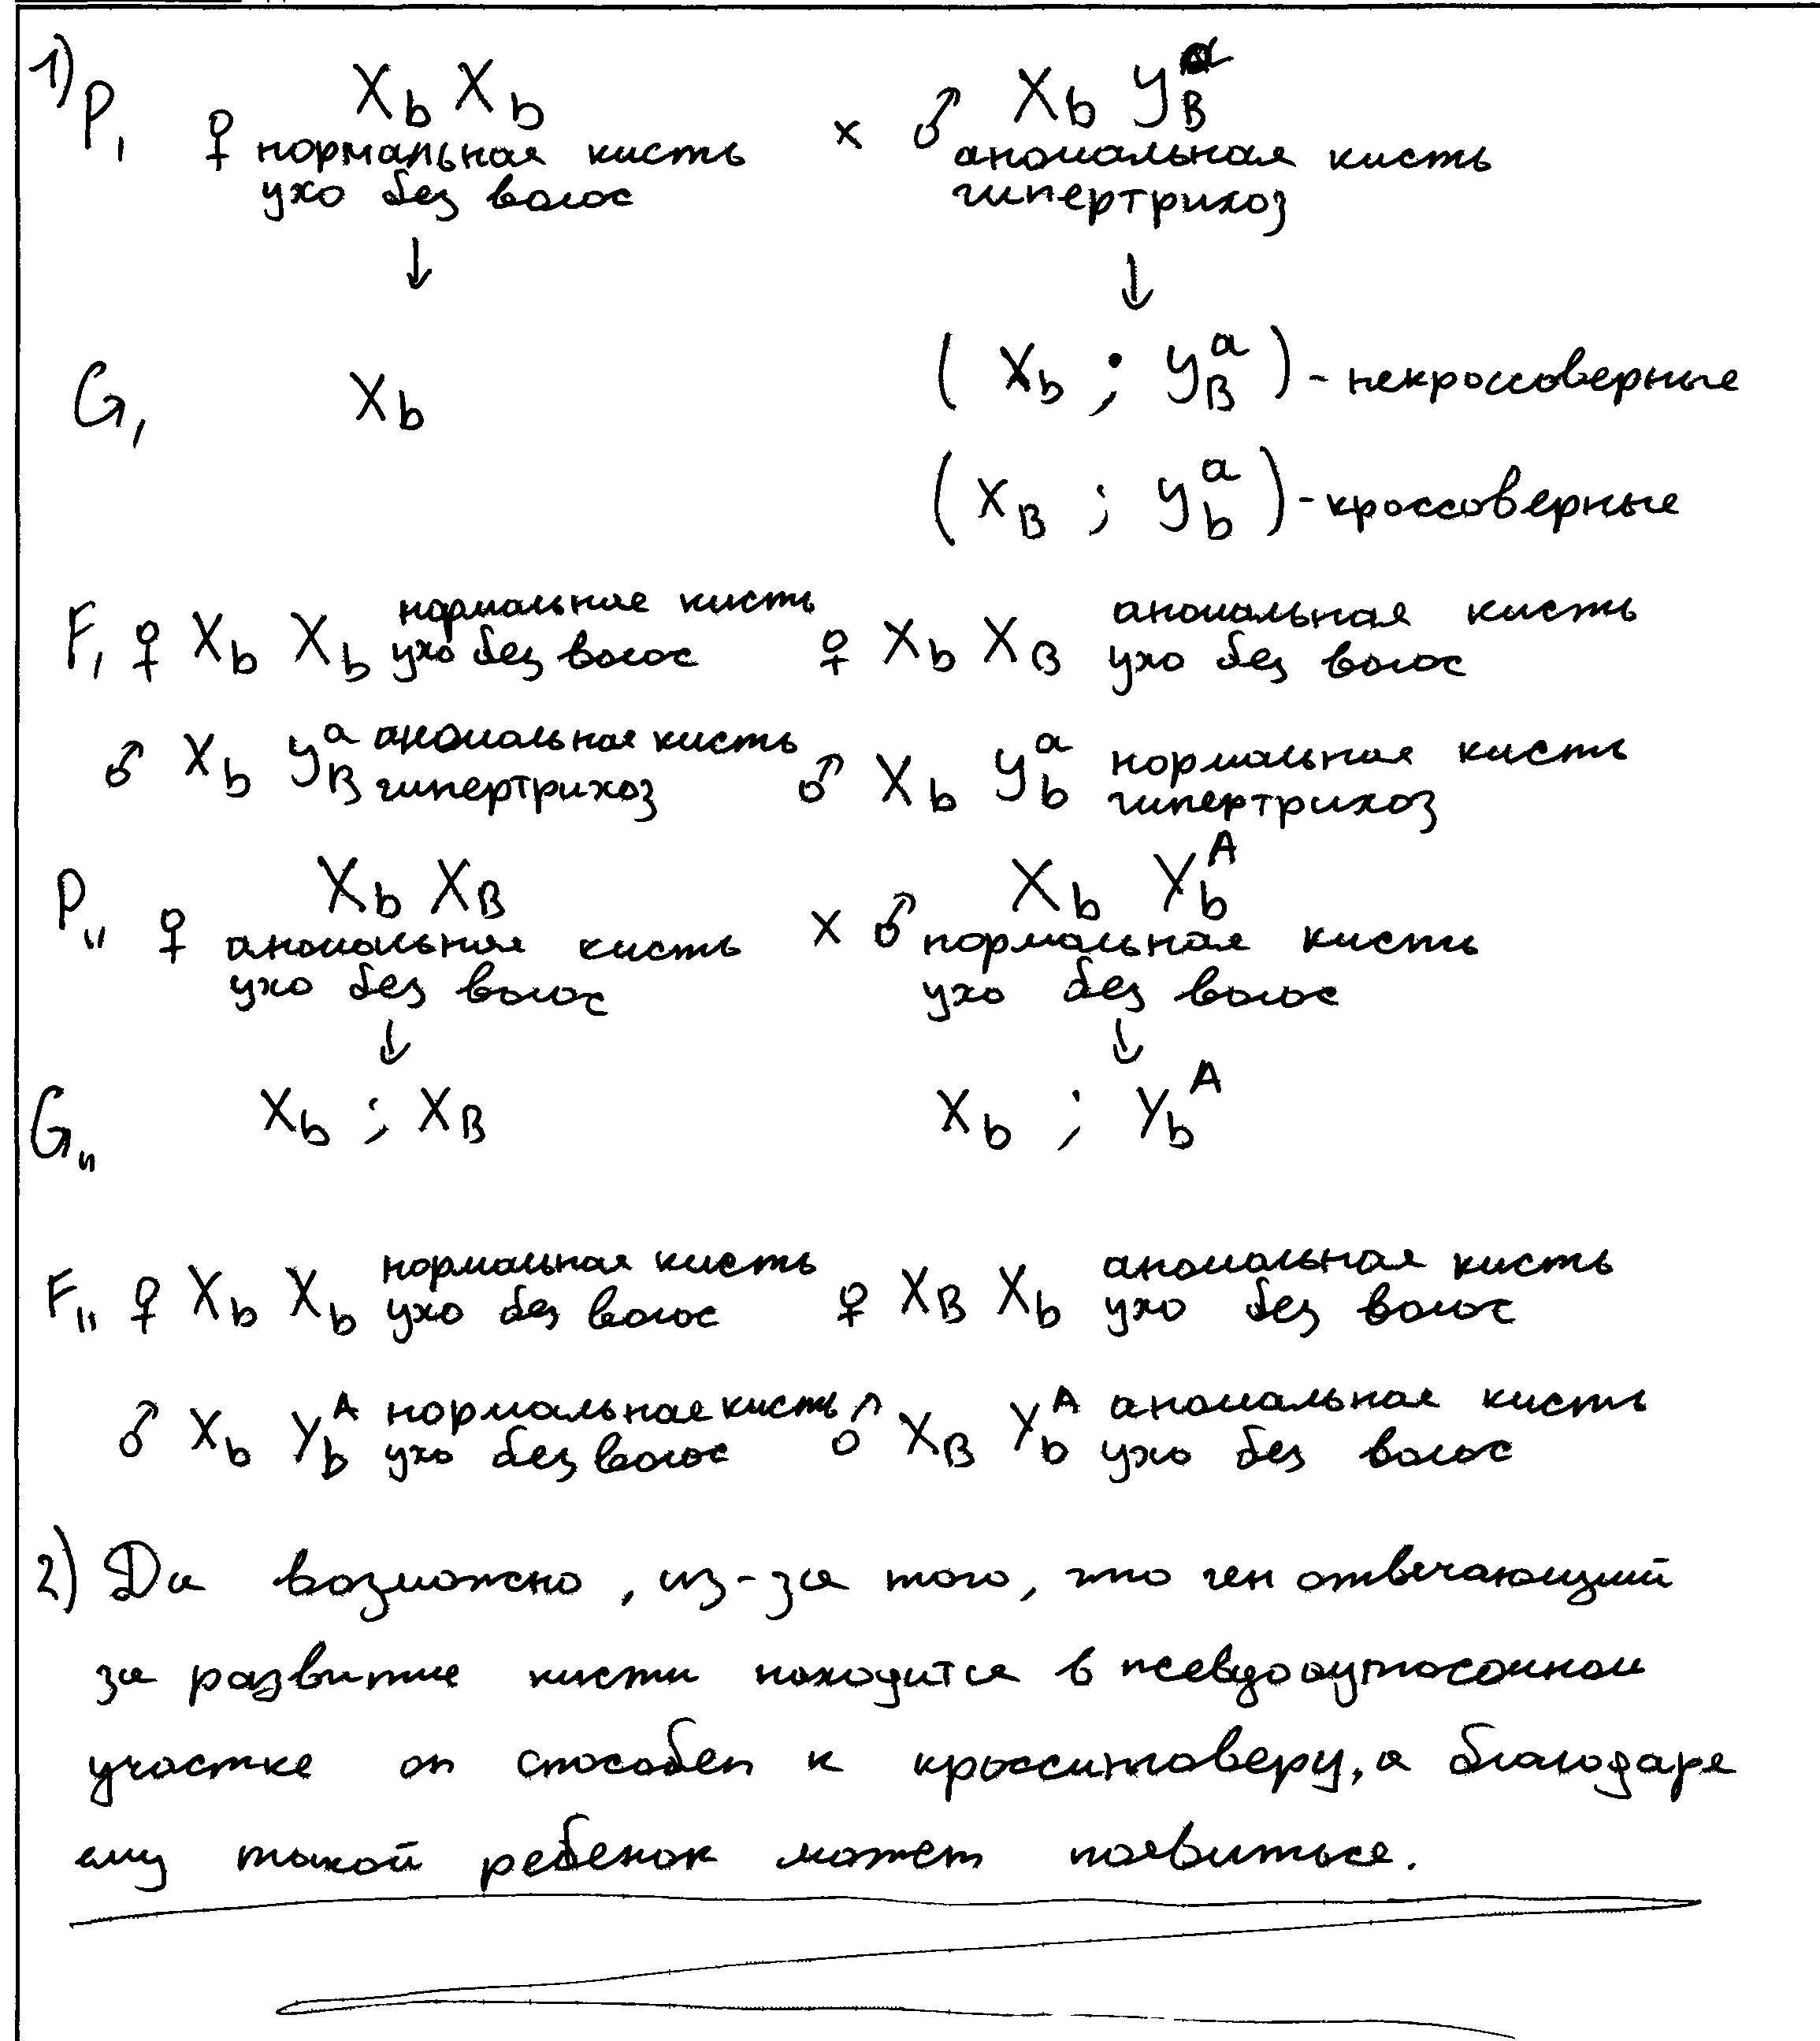 1) P₁ ♀ X_b X_b × ♂ X_b Y_B^a
нормальная кисть аномальная кисть
ухо без волос гипертрихоз
↓ ↓
G₁ X_b (X_b ; Y_B^a) - некроссоверные
(X_B ; Y_b^a) - кроссоверные
F₁ ♀ X_b X_b нормальная кисть ухо без волос ♀ X_b X_B аномальная кисть ухо без волос
♂ X_b Y_B^a аномальная кисть гипертрихоз ♂ X_b Y_b^a нормальная кисть гипертрихоз
P₁₁ ♀ X_b X_B × ♂ X_b Y_b^A
аномальная кисть нормальная кисть
ухо без волос ухо без волос
↓ ↓
G₁₁ X_b ; X_B X_b ; Y_b^A
F₁₁ ♀ X_b X_b нормальная кисть ухо без волос ♀ X_B X_b аномальная кисть ухо без волос
♂ X_b Y_b^A нормальная кисть ухо без волос ♂ X_B Y_b^A аномальная кисть ухо без волос
2) Да возможно, из-за того, что ген отвечающий
за развитие кисти находится в псевдоаутосомном
участке он способен к кроссинговеру, а благодаря
ему такой ребенок может появиться.